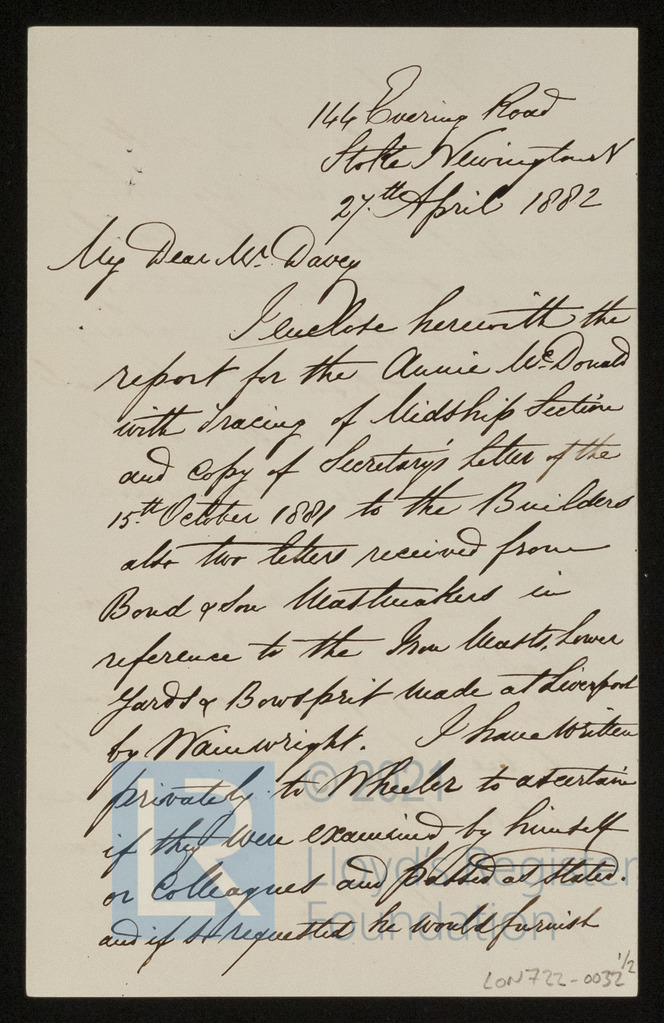 144 Evering Road
Stoke Newington N
27th April 1882
My Dear Mr. Davey
I enclose herewith the
report for the Annie McDonald
with tracing of Midship Section
and copy of Secretary's letter of the
15th October 1881 to the Builders
also two letters received from
Bond & Son Mastmakers in
reference to the Iron Masts, Lower
Yards & Bowsprit made at Liverpool
by Wainwright. I have written
privately to Wheeler to ascertain
if they were examined by himself
or Colleagues and passed as stated.
and if so requested he would furnish
LR
© 2021
Lloyd's Register
Foundation
LON722-0032
1/2